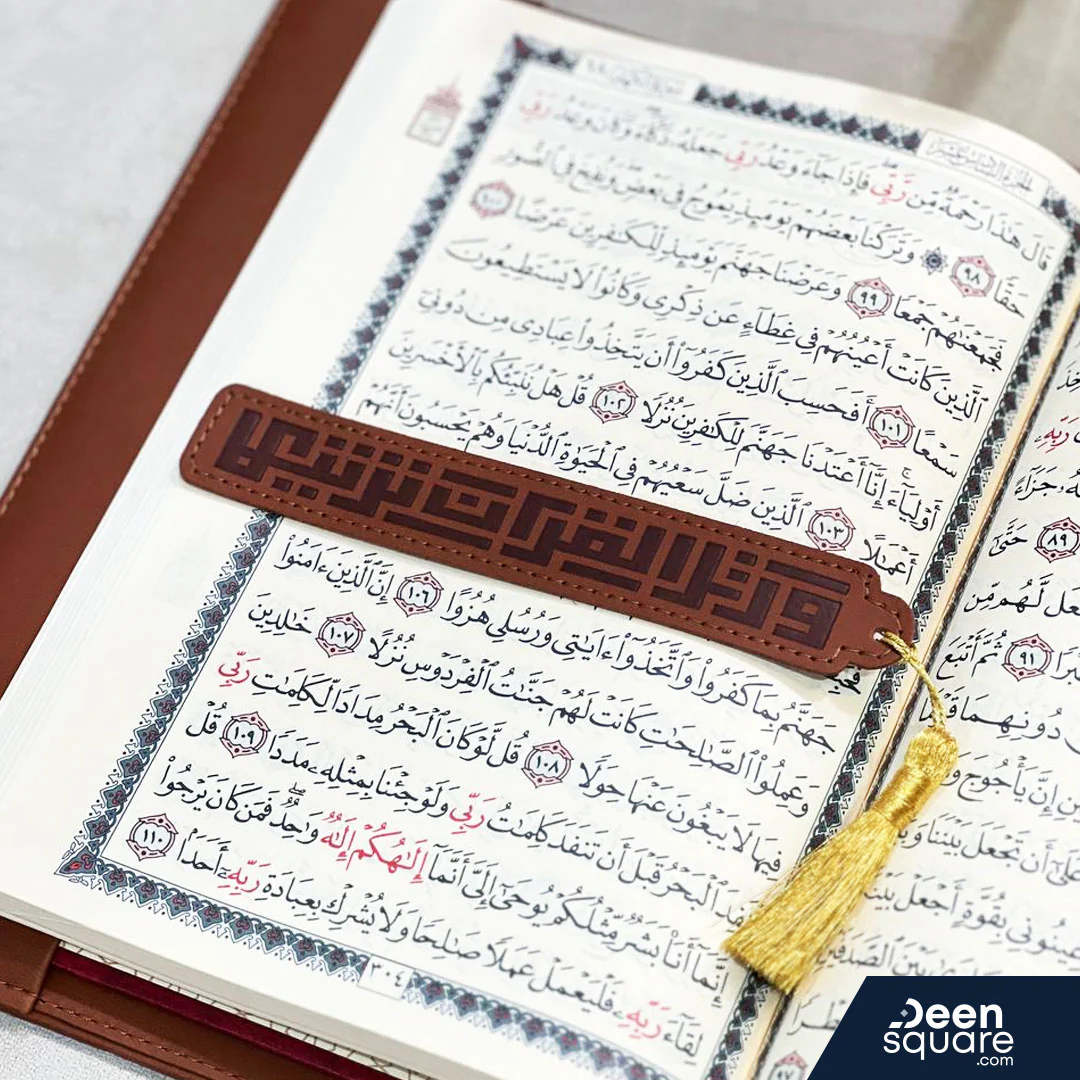 سورة الكهف ١٨
الجزء السادس عشر
قَالَ هَٰذَا رَحْمَةٌ مِّن رَّبِّي ۖ فَإِذَا جَآءَ وَعْدُ رَبِّي جَعَلَهُۥ دَكَّآءَ ۖ وَكَانَ وَعْدُ رَبِّي
حَقًّا ٩٨ ۞ وَتَرَكْنَا بَعْضَهُمْ يَوْمَئِذٍ يَمُوجُ فِي بَعْضٍ ۖ وَنُفِخَ فِي ٱلصُّورِ
فَجَمَعْنَٰهُمْ جَمْعًا ٩٩ وَعَرَضْنَا جَهَنَّمَ يَوْمَئِذٍ لِّلْكَٰفِرِينَ عَرْضًا ١٠٠
ٱلَّذِينَ كَانَتْ أَعْيُنُهُمْ فِي غِطَآءٍ عَن ذِكْرِي وَكَانُوا۟ لَا يَسْتَطِيعُونَ
سَمْعًا ١٠١ أَفَحَسِبَ ٱلَّذِينَ كَفَرُوٓا۟ أَن يَتَّخِذُوا۟ عِبَادِي مِن دُونِيٓ
أَوْلِيَآءَ ۚ إِنَّآ أَعْتَدْنَا جَهَنَّمَ لِلْكَٰفِرِينَ نُزُلًا ١٠٢ قُلْ هَلْ نُنَبِّئُكُم بِٱلْأَخْسَرِينَ
أَعْمَٰلًا ١٠٣ ٱلَّذِينَ ضَلَّ سَعْيُهُمْ فِي ٱلْحَيَوٰةِ ٱلدُّنْيَا وَهُمْ يَحْسَبُونَ أَنَّهُمْ
ورتل القرآن ترتيلا
جَهَنَّمُ بِمَا كَفَرُوا۟ وَٱتَّخَذُوٓا۟ ءَايَٰتِي وَرُسُلِي هُزُوًا ١٠٦ إِنَّ ٱلَّذِينَ ءَامَنُوا۟
وَعَمِلُوا۟ ٱلصَّٰلِحَٰتِ كَانَتْ لَهُمْ جَنَّٰتُ ٱلْفِرْدَوْسِ نُزُلًا ١٠٧ خَٰلِدِينَ
فِيهَا لَا يَبْغُونَ عَنْهَا حِوَلًا ١٠٨ قُل لَّوْ كَانَ ٱلْبَحْرُ مِدَادًا لِّكَلِمَٰتِ رَبِّي
لَنَفِدَ ٱلْبَحْرُ قَبْلَ أَن تَنفَدَ كَلِمَٰتُ رَبِّي وَلَوْ جِئْنَا بِمِثْلِهِۦ مَدَدًا ١٠٩ قُلْ
إِنَّمَآ أَنَا۠ بَشَرٌ مِّثْلُكُمْ يُوحَىٰٓ إِلَيَّ أَنَّمَآ إِلَٰهُكُمْ إِلَٰهٌ وَٰحِدٌ ۖ فَمَن كَانَ يَرْجُوا۟
لِقَآءَ رَبِّهِۦ فَلْيَعْمَلْ عَمَلًا صَٰلِحًا وَلَا يُشْرِكْ بِعِبَادَةِ رَبِّهِۦٓ أَحَدًۢا ١١٠
٣٠٤
جَزَآءً
٨٩ حَتَّىٰٓ
لَّهُم مِّن
٩١ ثُمَّ أَتْبَعَ
دُونِهِمَا
إِنَّ يَأْجُوجَ
أَن تَجْعَلَ بَيْنَنَا
بِقُوَّةٍ أَجْعَلْ
بَيْنَ ٱلصَّدَفَيْنِ
Deen
square
.com